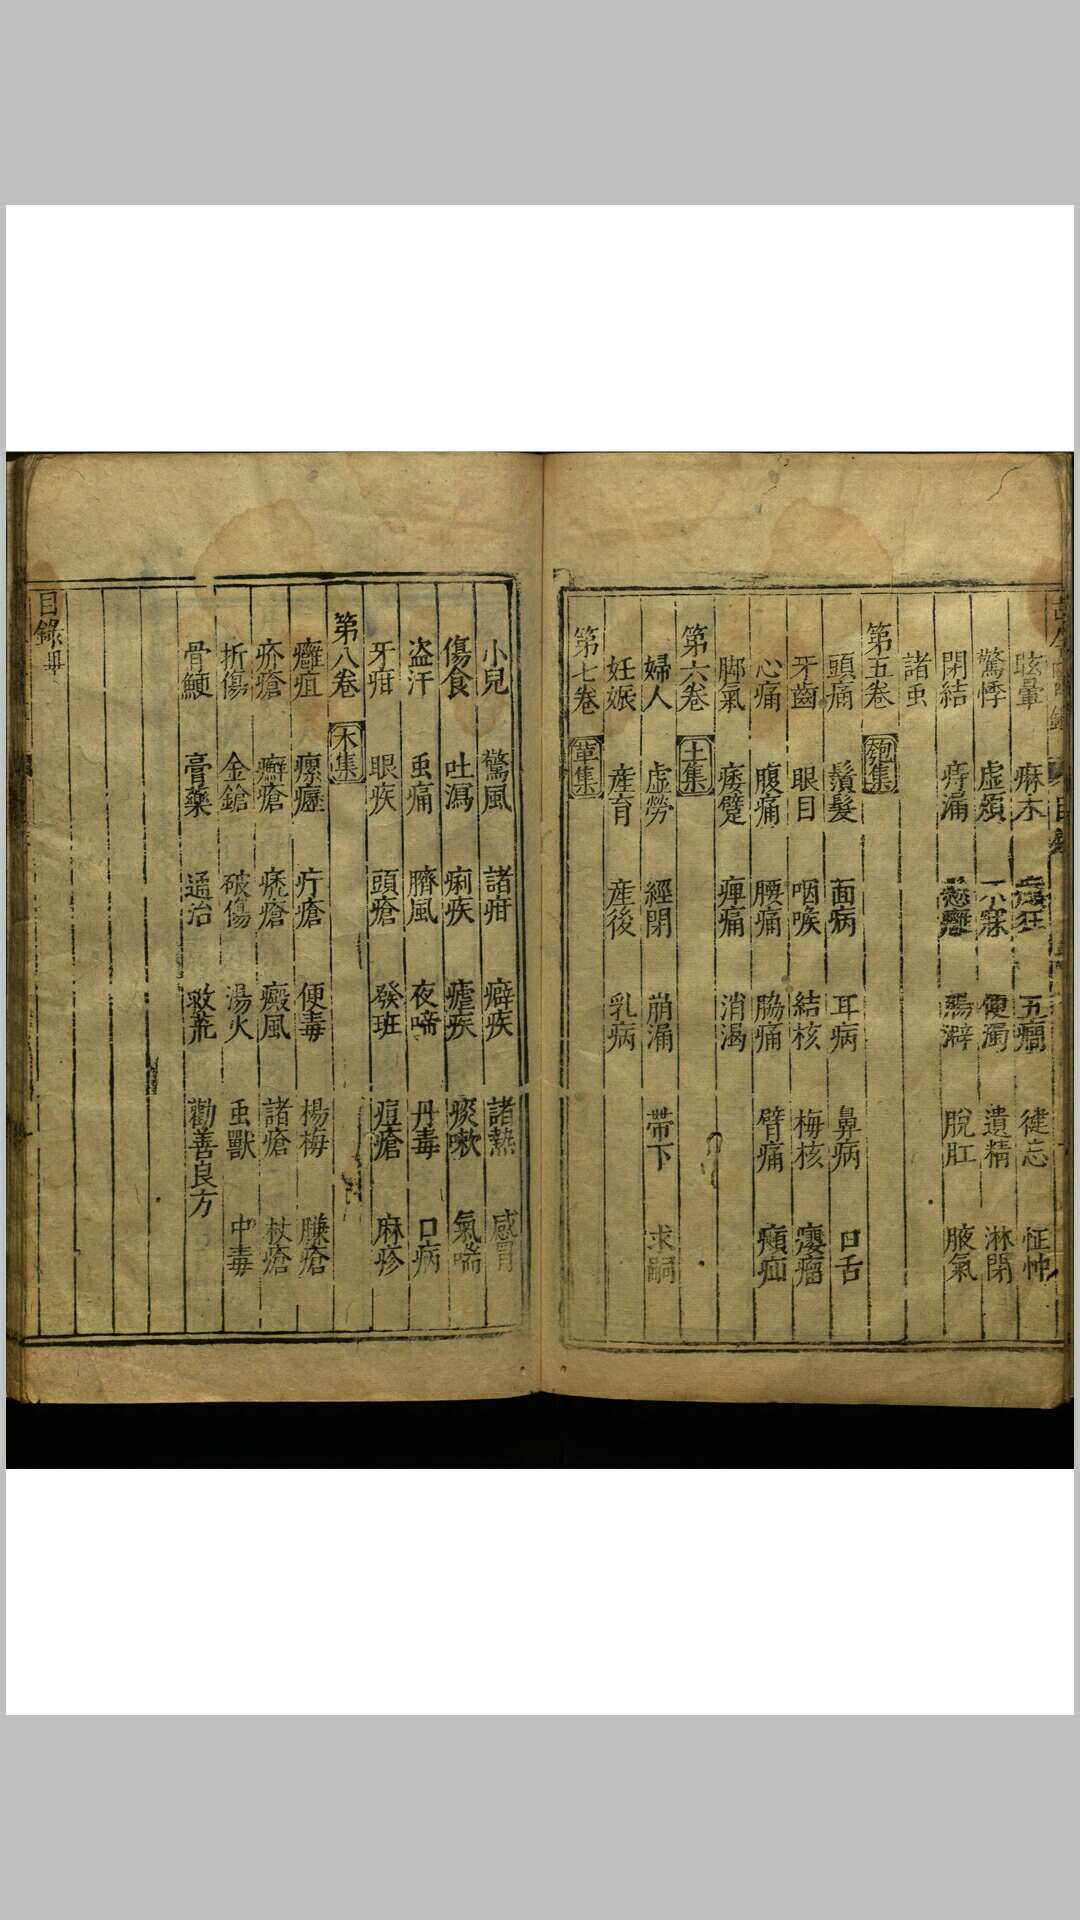 眩暈 麻木 癲狂 五癇 健忘 怔忡
驚悸 虛煩 不寐 便濁 遺精 淋閉
閉結 痔漏 懸癰 腸澼 脫肛 腋氣
諸虫
第五卷 匏集
頭痛 鬚髮 面病 耳病 鼻病 口舌
牙齒 眼目 咽喉 結核 梅核 癭瘤
心痛 腹痛 腰痛 脇痛 臂痛 㿗疝
脚氣 痿躄 痺痛 消渴
第六卷 土集
婦人 虛勞 經閉 崩漏 帶下 求嗣
妊娠 產育 產後 乳病
第七卷 革集
小兒 驚風 諸疳 癖疾 諸熱 感冒
傷食 吐瀉 痢疾 瘧疾 痰嗽 氣喘
盗汗 虫痛 臍風 夜啼 丹毒 口病
牙疳 眼疾 頭瘡 發班 痘瘡 麻疹
第八卷 木集
癰疽 瘰癧 疔瘡 便毒 楊梅 臁瘡
疥瘡 癬瘡 禿瘡 癜風 諸瘡 杖瘡
折傷 金鎗 破傷 湯火 虫獸 中毒
骨鯁 膏藥 通治 救荒 勸善良方
目錄毌